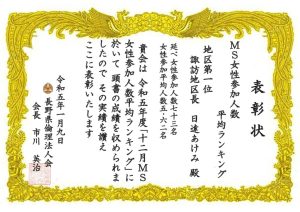 表彰状
MS女性参加人数
平均ランキング
地区第一位
諏訪地区長 日達あけみ 殿
延べ女性参加人数七十三名
女性参加平均人数五・六二名
貴会は 令和五年度「十二月MS
女性参加人数平均ランキング」に
於いて 頭書の成績を収められま
したので その実績を讃え
ここに表彰いたします
令和五年一月九日
長野県倫理法人会
会長 市川 英治